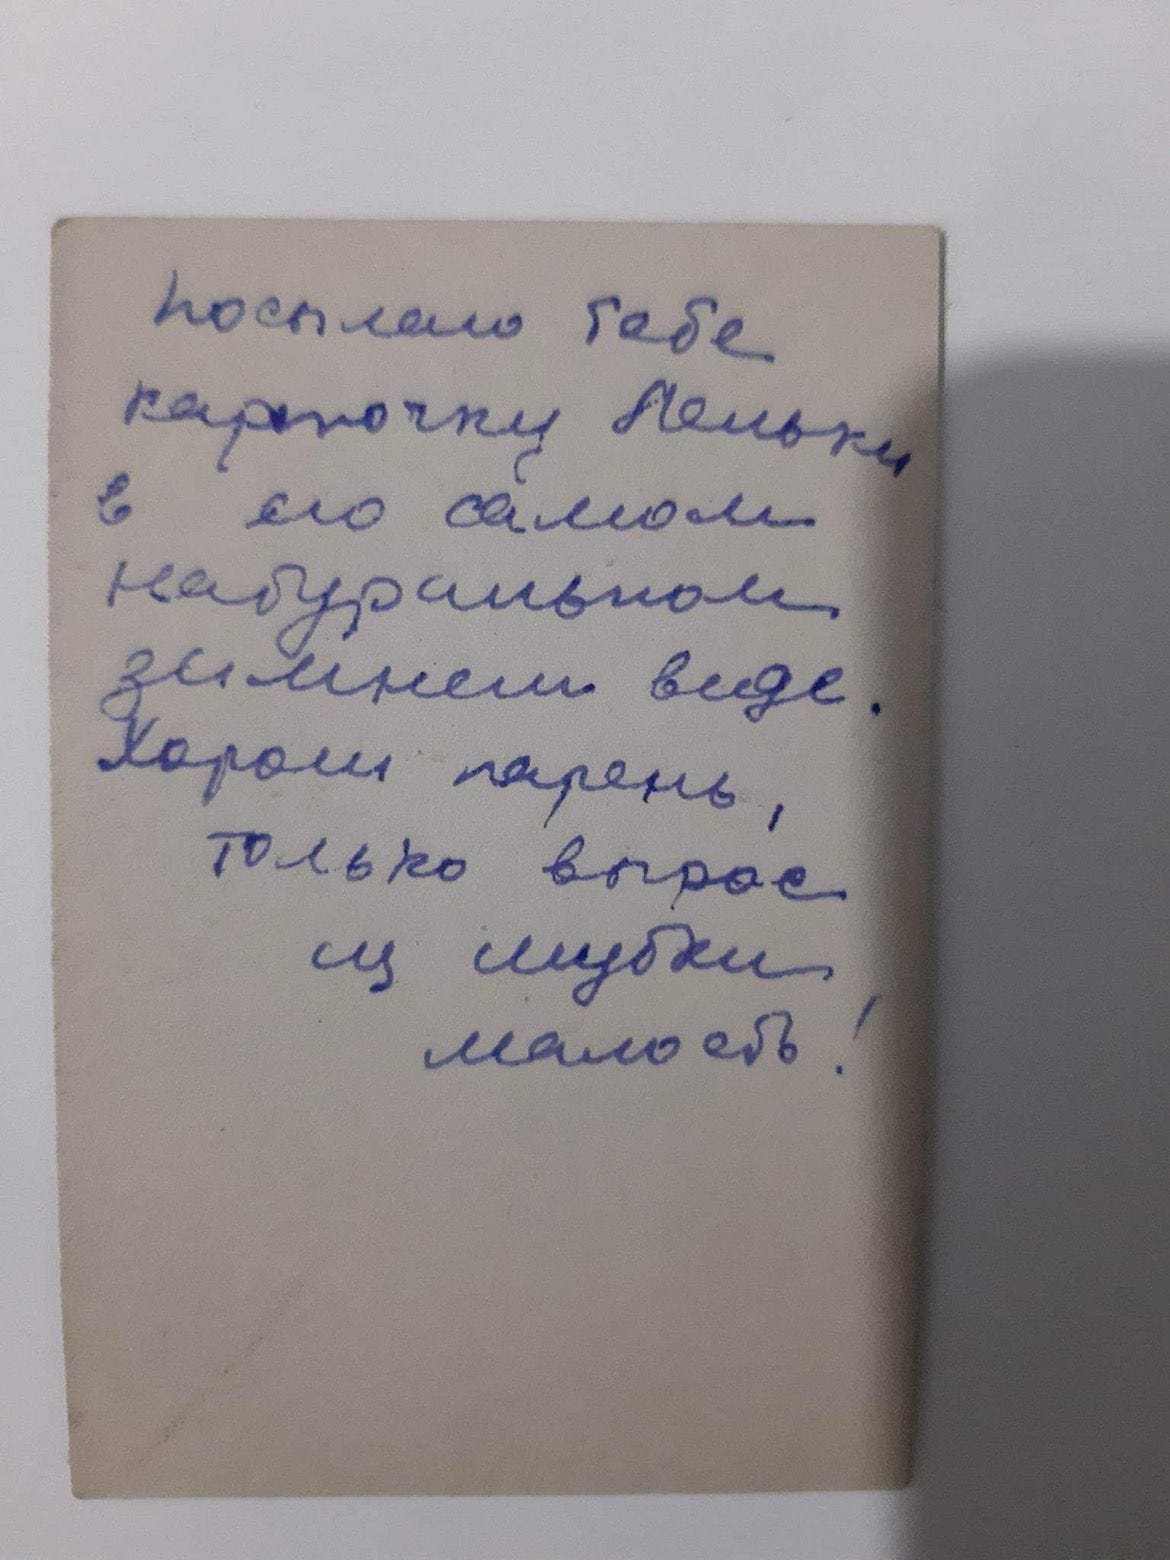 Посылаю тебе
карточку Леньки
в его самом
натуральном
зимнем виде.
Хорош парень,
только вырос
из шубки
малость!